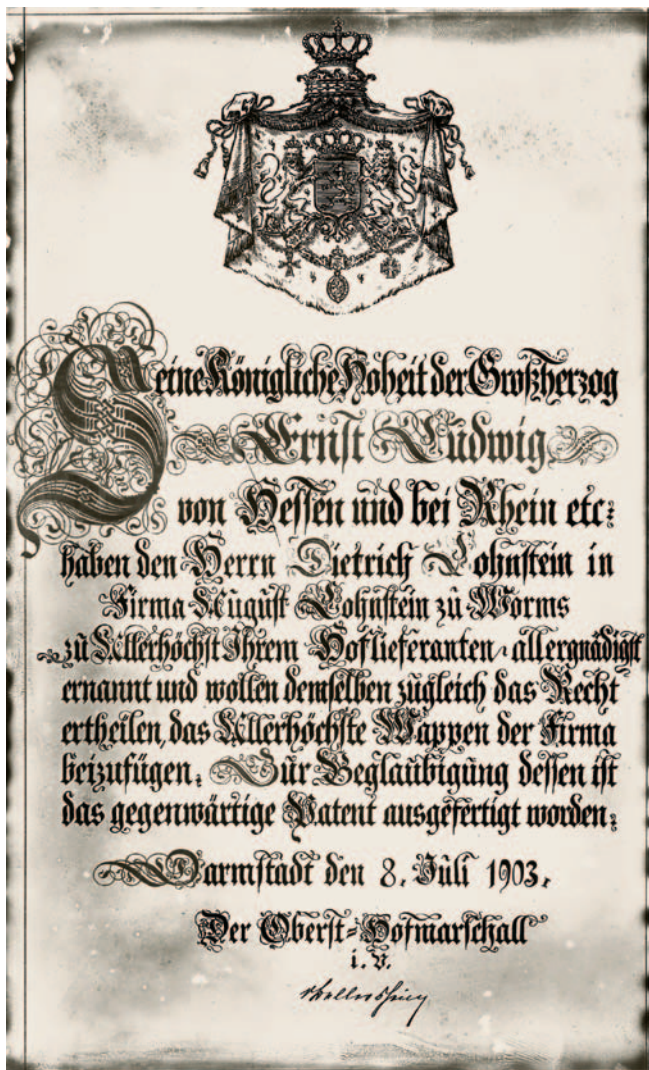 Seine Königliche Hoheit der Großherzog
Ernst Ludwig
von Hessen und bei Rhein etc:
haben den Herrn Dietrich Lohnstein in
Firma August Lohnstein zu Worms
zu Allerhöchst Ihrem Hoflieferanten allergnädigst
ernannt und wollen demselben zugleich das Recht
ertheilen, das Allerhöchste Wappen der Firma
beizufügen. Zur Beglaubigung dessen ist
das gegenwärtige Patent ausgefertigt worden:
Darmstadt den 8. Juli 1903.
Der Oberst-Hofmarschall
i. V.